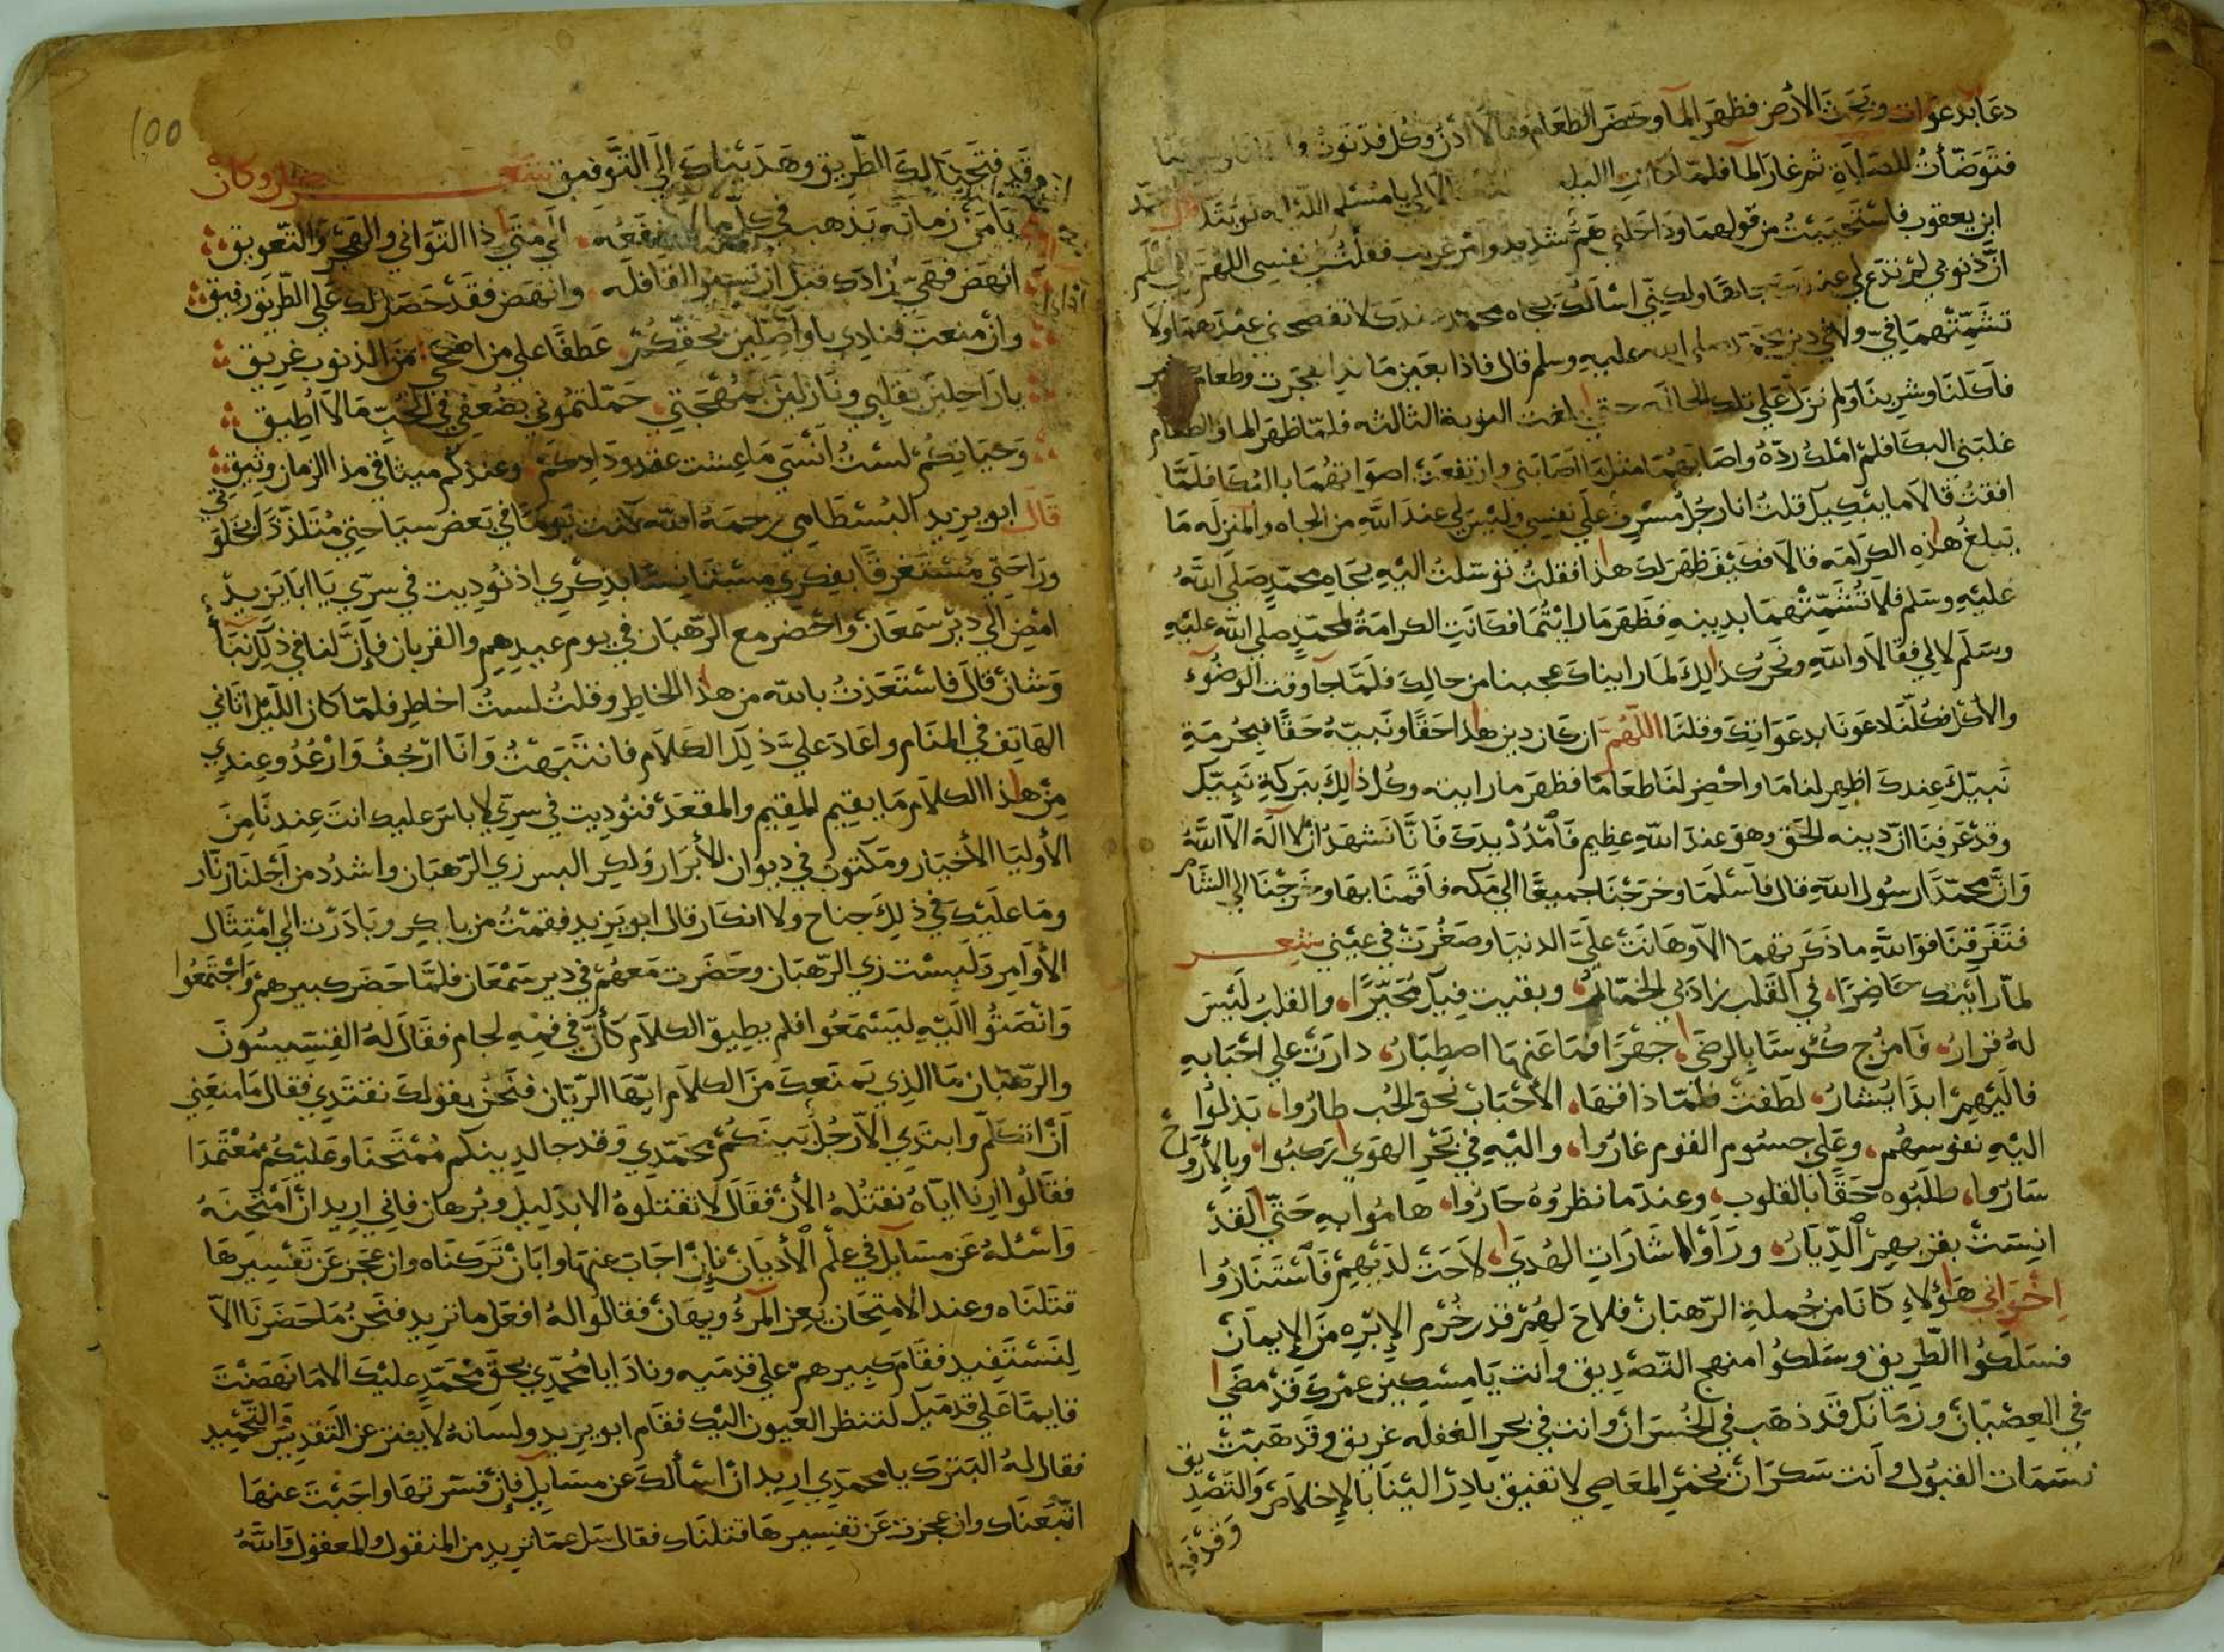 دعَا بدعوات وبَحَثَ الأرض فظهَرَ الما وحَضَر الطعَام وقالا ادنُ وكُل فدَنَوت
فتَوَضّأتُ للصلاة ثم غارَ الما فلمّا كانت الليلة الي يا مسلم
ابن يعقوب فاستحييتُ من قولهما ودَاخلني همٌّ شديد وامر غريب فقلتُ في نفسي اللهمَّ اني اعلم
انَّ ذنوبي لم تدَع لي عندك جاهًا ولكنّي اسْالك بجاه محمد عندك لا تفضحني عندهمَا ولا
تشمّتهمَا فيّ ولا في دين محمد صلي الله عليه وسلم قال فاذا بعَين ما وطعام
فاَكلنَا وشربنَا ولم نزل علي تلك الحاله حتي بلغت النوبة الثالثه فلمّا ظهَر الما والطعام
غلبَني البكا فلم املك ردّهُ واصَابهُمَا مثل مَا اصَابني وارتفعَت اصواتهُمَا بالبُكا فلمَّا
افقتُ قالاَ ما يبكيك قلتُ انا رجُل مُسْرف علي نفسِي وليسَ لي عندَ اللهِ من الجاه والمنزله مَا
تبلغُ هذهِ الكرامَه قالاَ فكيْفَ ظهَر لك هذا فقلتُ توسّلتُ اليْهِ بجَاهِ محمّدٍ صَلي اللهُ
عليْهِ وسَلم فلاَ تُشمّتهُمَا بدينهِ فظهَرَ مَا رايتُمَا فكانَتِ الكرامَةُ لمحمّدٍ صلي الله عليْهِ
وسَلّم لا لي فقالاَ واللهِ ونحنُ كذلكَ لمَا رايناكَ عجبنا من حالِكَ فلمَّا جآ وقت الوضُوءِ
والاكل فكُلّنَا دعَونَا بدعَواتِكَ وقلنَا اللّهُمَّ ان كان دين هذا حَقًّا ونبيّهُ حَقًّا فبِحُرمَةِ
نَبيّكَ عِندكَ اظهِر لنا مَا واحْضِر لنَا طعَامًا فظهَر ما رايته وكُل ذلِكَ ببَركةِ نَبِيّك
وقدْ عَرفنَا انّ دينه الحَق وهوَ عندَ اللهِ عظِيم فَامْدُدْ يدَكَ فانَّا نَشهَدُ انْ لا اِلَهَ الاَّ اللَّهُ
وَانَّ محمّدًا رسُول اللهِ قال فاَسْلمَا وخرَجْنَا جميعًا الي مَكه فاَقمنَا بهَا وخَرجْنَا الي الشَّام
فتَفرقنَا فوَاللَّهِ ما ذكرتهمَا الاَّ وهَانتْ عليَّ الدنيَا وصَغُرَتْ في عيْني شعر
لمّا رايتك حَاضِرًا، في القَلب زادَ بي الخمّارُ، وبقيت فيك مُحَيّرًا، والقلب ليْسَ
لهُ قرارُ، فَامزُج كُوسنَا بِالرضَي، جهْرًا فمَا عَنهَا اصطِبَارُ، دارَتْ علي احْبَابِهِ
فاليْهِمْ ابدًا يُشارُ، لطَفتْ فلمّا ذاقهَا، الأحْبَاب نحوَ الحُب طارُوا، بَذلُوا
اليْهِ نفوسهُم، وعَلي جسُوم القوم غارُوا، واليْهِ في بَحْرِ الهَوي رَكبُوا وبالأروَاح
سَارُوا، طلَبُوه حَقًّا بالقلوب، وعندَما نظروُهُ حَارُوا، هامُوا بهِ حَتّي لَقدْ
انِسَتْ بقربِهِمُ الدّيَارُ، ورَأوْا اشَارَاتِ الهُدَي، لاَحَتْ لدَيهِمْ فَاسْتنَارُوا
اِخْوَاني هَؤلاءِ كانَا من جُملةِ الرّهبَان فلاحَ لهُمْ قدر خُرم الإبرَه مِنَ الإيمَانْ
فسَلكُوا الطّرِيق وسَلكُوا منهج التّصْدِيق وانت يَا مِسْكين عمرك قدْ مضَي
في العِصْيَانْ وزمَانك قدْ ذهَب في الخُسرَانْ وانت في بحر الغفله غريق وقدهَبّت
نسَمَات القبُول وانت سَكرَانْ بخمْرِ المَعَاصي لا تفيق بادِرْ اليْنَا بالإخلاَص والتصْدِيق
وَقدْ فتَ
١٥٥
وقَدْ فتَحْنَا لكَ الطّريق وهَدَيناكَ اليَ التّوفيق شعر
يَا مَنْ زمَانهُ يَذهب في كلّ ما لا ينفعه، الَي مَتَي ذا التّوَاني والهَجْر والتّعويق
انهَض فهَيّ زادَك قبل ان تسير القافله، وانهَض فقَدْ حَصَل لك عَلي الطّريق رفيق
وانْ منعتَ فنادِي يا واصِلين بحقِّكُمْ، عَطفًا علي من اضحَي مِنَ الذنوب غريق
يا رَاحِلينَ بقلبي ونَازلينَ بمُهْجَتي، حَمّلتمُوني بضُعفِي في الحُبِّ مَا لاَ اُطيق
وَحيَاتِكُم لَسْتُ اَنْسَي مَا عِشت عقدودَادِكمْ، وعندكم ميثاقي مذا الزمان وثيق
قَالَ ابو يزيد البُسْطَامي رحمَهُ الله كنت يَومًا في بَعض سيَاحَتِي مُتَلذّذًا بخلوَتي
ورَاحَتِي مُسْتغرقًا بفِكرِي مُسْتَانِسًا بذكري اذ نُودِيت في سِرّي يَا ابَا يَزيدُ
امْضِ الي ديْر سَمعَانْ واحْضر مع الرّهبَان في يوم عيدِهِم والقربان فإنَّ لنا في ذَلِكَ نبَأ
وَشانْ قال فَاسْتَعَذتُ بالله من هذا الخاطِر وقلتُ لستُ اخاطِر فلمّا كان اللَّيْل اتاني
الهَاتِف في المنَام واعَادَ عليَّ ذلِكَ الكلاَم فانتَبَهْتُ وَانَا ارْجُفُ وَارْعُدُ وعِندِي
مِنْ هذا الكلاَم مَا يقيم المقِيم والمقعَدْ فنُودِيت في سِرّي لا باسَ عليك انتَ عِندنَا مِنَ
الأوليَا الأخيَار ومَكتوبٌ في ديوان الأبرَار وَلكن البس زي الرّهبَان واشدُد من اَجلنا زنَّار
ومَا علَيْكَ في ذلِكَ جناح ولا انكار قال ابو يَزيد فقمْتُ من باكِر وبَادَرْت الي امْتِثَال
الأوَامِر وَلبِسْت زي الرّهبَان وحَضَرت مَعهُمْ في دير سَمْعَان فلمَّا حَضَر كبيرهمْ وَاجْتمَعُوا
وَانصَتُوا اليْهِ ليَسْمَعُوا فلم يطِيق الكلاَم كأنَّ في فمِهِ لجام فقالَ لهُ القِسّيسُونَ
والرّهبَان مَا الذي يَمنَعكَ مِنَ الكلاَم ايّهَا الرّبّان فنَحْنُ بقولكَ نقتَدِي فقال مَا منَعَني
اَنْ اتكلّم وابتَدِي الاّ رجُل بَينكُمْ محَمّدِي وَقد جا لدينكم مُمْتَحِنًا وعَليْكُمْ مُعْتَمِدَا
فقَالُوا ارنا ايّاهُ نقتُلهُ الأنْ فقَالَ لا تقتلوهُ الا بدَليلٍ وبُرهان فاني اريد انْ اَمْتحِنَهُ
وَاسْئلهُ عَن مسَايل في علم الأديانْ فإنْ اجَابَ عنهَا وابَانْ تَرَكنَاه وان عجَز عَن تَفسِيرهَا
قتَلنَاه وعند الامتِحَان يُعز المَرءُ ويُهَانْ فقالوا لهُ افعَل ما تريد فنَحنُ مَا حَضَرنَا الاّ
لِنَسْتَفِيد فقَامَ كبِيرهمْ علي قدمَيه ونَادَا يا مُحمّدِي بحقّ مُحَمّدٍ عليْكَ الا مَا نَهَضْتَ
قايمًا عَلي قدمَيْك لتَنظر العيون اليْك فقَام ابو يزيد ولسَانهُ لا يفتر عن التَّقدِيسِ والتَّحْمِيدِ
فقال لهُ البترَك يا محمّدي اريد انْ اسْألكَ عن مسَايل فإنْ فسّرتهَا واجَبْتَ عنهَا
اتّبَعنَاك وان عجزت عَن تفسيرهَا قتلنَاك فقال سَل عمّا تريد من المنقول والمعقول وَاللَّهُ